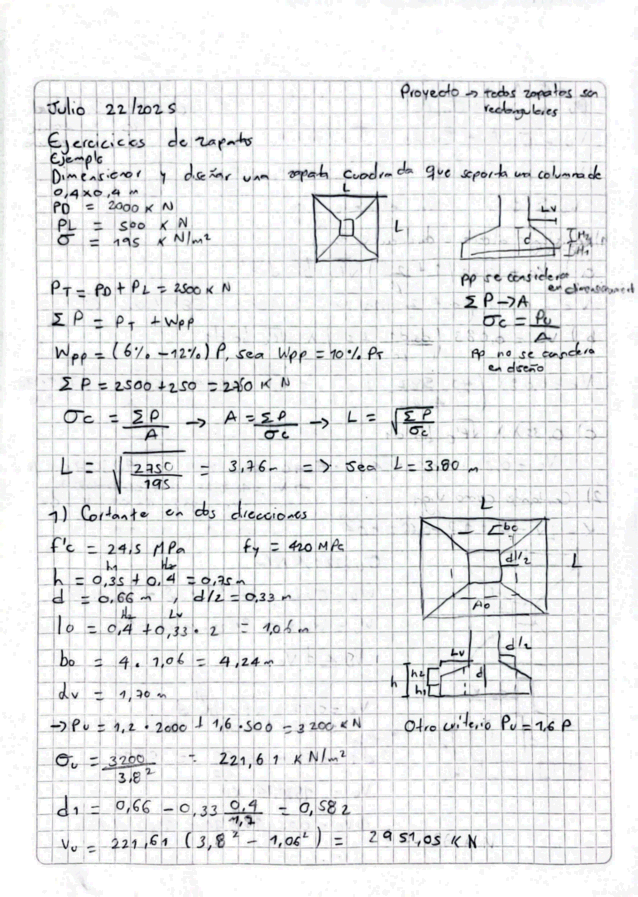 Julio 22/2025
Proyecto → todas zapatas son
rectangulares
Ejercicicos de zapatas
Ejemplo
Dimensionar y diseñar una zapata cuadrada que soporta una columna de
0,4x0,4 m
PD = 2000 KN
PL = 500 KN
σ = 195 KN/m²
L
L
Lv
d
H2
H1
PT = PD + PL = 2500 KN
ΣP = PT + Wpp
Wpp = (6% - 12%) P, sea Wpp = 10% PT
ΣP = 2500 + 250 = 2750 KN
pp se considera
en dimensionamient
ΣP → A
σc = Pu/A
Pp no se considera
en diseño
σc = ΣP/A → A = ΣP/σc → L = √(ΣP/σc)
L = √(2750/195) = 3,76m => Sea L = 3,80 m
1) Cortante en dos direcciones
f'c = 24,5 MPa fy = 420 MPa
h1 H2
h = 0,35 + 0,4 = 0,75m
d = 0,66 m, d/2 = 0,33 m
H2 Lv
lo = 0,4 + 0,33 · 2 = 1,06 m
bo = 4 · 1,06 = 4,24m
dv = 1,70 m
L
bo
d/2
L
Ao
Lv
d/2
h
h2
h1
d
→ Pu = 1,2 · 2000 + 1,6 · 500 = 3200 KN
Otro criterio Pu = 1,6 P
σu = 3200/3,8² = 221,61 KN/m²
d1 = 0,66 - 0,33 0,4/1,7 = 0,582
Vu = 221,61 (3,8² - 1,06²) = 2951,05 KN